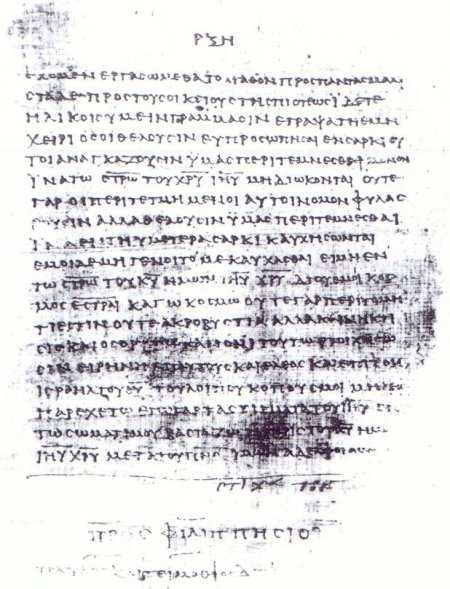 ΡΞΗ
ΕΧΟΜΕΝ ΕΡΓΑϹΩΜΕΘΑ ΤΟ ΑΓΑΘΟΝ ΠΡΟϹ ΠΑΝΤΑϹ ΜΑΛΙ
ϹΤΑ ΔΕ ΠΡΟϹ ΤΟΥϹ ΟΙΚΕΙΟΥϹ ΤΗϹ ΠΙϹΤΕΩϹ ΙΔΕΤΕ
ΗΛΙΚΟΙϹ ΥΜΕΙΝ ΓΡΑΜΜΑϹΙΝ ΕΓΡΑΨΑ ΤΗ ΕΜΗ
ΧΕΙΡΙ ΟϹΟΙ ΘΕΛΟΥϹΙΝ ΕΥΠΡΟϹΩΠΗϹΑΙ ΕΝ ϹΑΡΚΙ ΟΥ
ΤΟΙ ΑΝΑΓΚΑΖΟΥϹΙΝ ΥΜΑϹ ΠΕΡΙΤΕΜΝΕϹΘΑΙ ΜΟΝΟΝ
ΙΝΑ ΤΩ Ϲ̅Τ̅Ρ̅Ω̅ ΤΟΥ Χ̅Ρ̅Υ̅ Ι̅Η̅Υ̅ ΜΗ ΔΙΩΚΟΝΤΑΙ ΟΥΤΕ
ΓΑΡ ΟΙ ΠΕΡΙΤΕΤΜΗΜΕΝΟΙ ΑΥΤΟΙ ΝΟΜΟΝ ΦΥΛΑϹ
ϹΟΥϹΙΝ ΑΛΛΑ ΘΕΛΟΥϹΙΝ ΥΜΑϹ ΠΕΡΙΤΕΜΝΕϹΘΑΙ
ΙΝΑ ΕΝ ΤΗ ΥΜΕΤΕΡΑ ϹΑΡΚΙ ΚΑΥΧΗϹΩΝΤΑΙ
ΕΜΟΙ ΔΕ ΜΗ ΓΕΝΟΙΤΟ ΜΕ ΚΑΥΧΑϹΘΑΙ ΕΙ ΜΗ ΕΝ
ΤΩ Ϲ̅Τ̅Ρ̅Ω̅ ΤΟΥ Κ̅Υ̅ ΗΜΩΝ Ι̅Η̅Υ̅ Χ̅Ρ̅Υ̅ ΔΙ ΟΥ ΕΜΟΙ ΚΟϹ
ΜΟϹ ΕϹΤΡΑΙ ΚΑΓΩ ΚΟϹΜΩ ΟΥΤΕ ΓΑΡ ΠΕΡΙΤΟΜΗ
ΤΙ ΕϹΤΙΝ ΟΥΤΕ ΑΚΡΟΒΥϹΤΙΑ ΑΛΛΑ ΚΑΙΝΗ ΚΤΙ
ϹΙϹ ΚΑΙ ΟϹΟΙ ΤΩ ΚΑΝΟΝΙ ΤΟΥΤΩ
ΕΙΡΗΝΗ ΕΠ ΑΥΤΟΥϹ ΚΑΙ ΕΛΕΟϹ ΚΑΙ ΕΠΙ ΤΟΝ
ΤΟΥ ΛΟΙΠΟΥ ΚΟΠΟΥϹ ΜΟΙ ΜΗΔΕΙϹ
ΠΑΡΕΧΕΤΩ ΕΓΩ ΓΑΡ ΤΑ ϹΤΙΓΜΑΤΑ ΤΟΥ Ι̅Η̅Υ̅ ΕΝ
ΤΩ ϹΩΜΑΤΙ ΜΟΥ ΒΑϹΤΑΖΩ
Ι̅Η̅Υ̅ Χ̅Ρ̅Υ̅ ΜΕΤΑ ΤΟΥ Π̅Ν̅Ϲ̅ ΥΜΩΝ ΑΔΕΛΦΟΙ
ϹΤΙΧ
ΠΡΟϹ ΦΙΛΙΠΠΗϹΙΟΥϹ
ΠΑΥΛΟϹ ΚΑΙ ΤΕΙΜΟΘΕΟϹ Δ